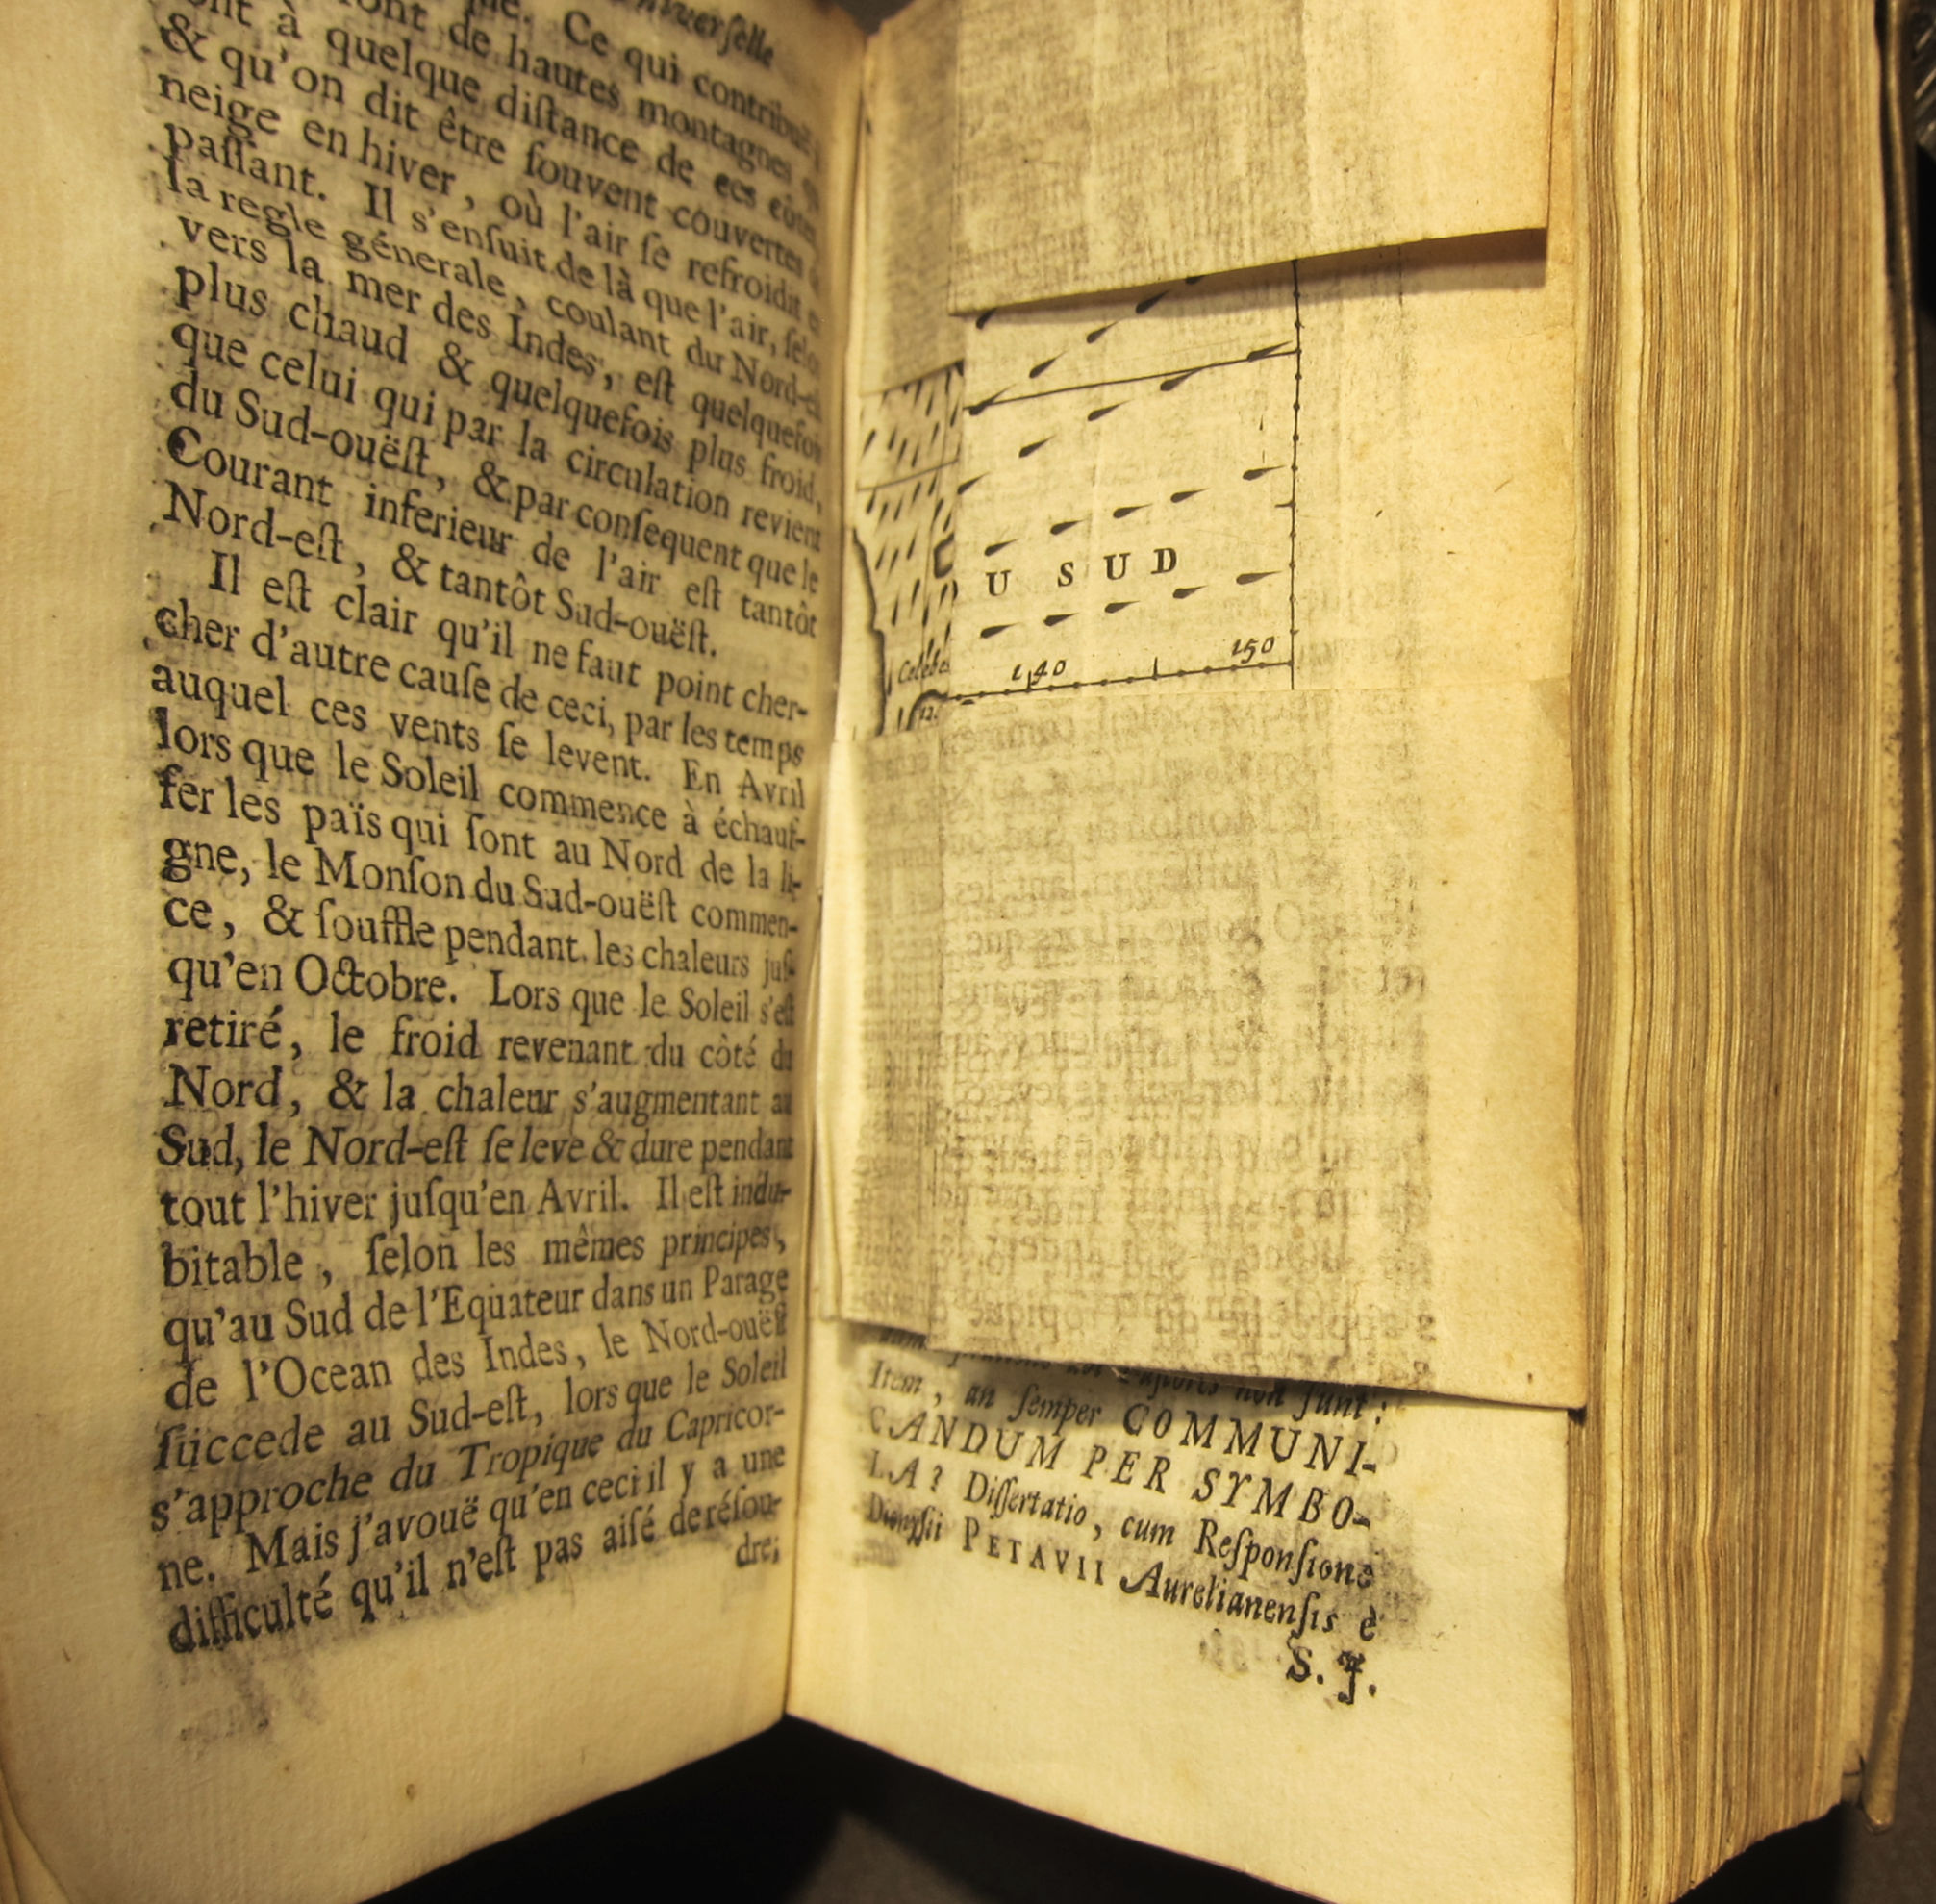 niverſelle
Ce qui contribuë
ont de hautes montagnes
à quelque diſtance de ces côtes
& qu'on dit être ſouvent couvertes
neige en hiver, où l'air ſe refroidit
paſſant. Il s'enſuit de là que l'air, ſelon
la regle génerale, coulant du Nord-eſt
vers la mer des Indes, eſt quelquefois
plus chaud & quelquefois plus froid,
que celui qui par la circulation revient
du Sud-ouëſt, & par conſequent que le
Courant inferieur de l'air eſt tantôt
Nord-eſt, & tantôt Sud-ouëſt.
Il eſt clair qu'il ne faut point cher-
cher d'autre cauſe de ceci, par les temps
auquel ces vents ſe levent. En Avril
lors que le Soleil commence à échauf-
fer les païs qui ſont au Nord de la li-
gne, le Monſon du Sud-ouëſt commen-
ce, & ſouffle pendant les chaleurs juſ-
qu'en Octobre. Lors que le Soleil s'eſt
retiré, le froid revenant du côté du
Nord, & la chaleur s'augmentant au
Sud, le Nord-eſt ſe leve & dure pendant
tout l'hiver juſqu'en Avril. Il eſt indu-
bitable, ſelon les mêmes principes,
qu'au Sud de l'Equateur dans un Parage
de l'Ocean des Indes, le Nord-ouëſt
ſuccede au Sud-eſt, lors que le Soleil
s'approche du Tropique du Capricor-
ne. Mais j'avouë qu'en ceci il y a une
difficulté qu'il n'eſt pas aiſé de réſou-
dre;
U SUD
Celebes
140 150
non ſunt:
Item, an ſemper COMMUNI-
CANDUM PER SYMBO-
LA? Diſſertatio, cum Reſponſione
Dionyſii PETAVII Aurelianenſis è
S. J.